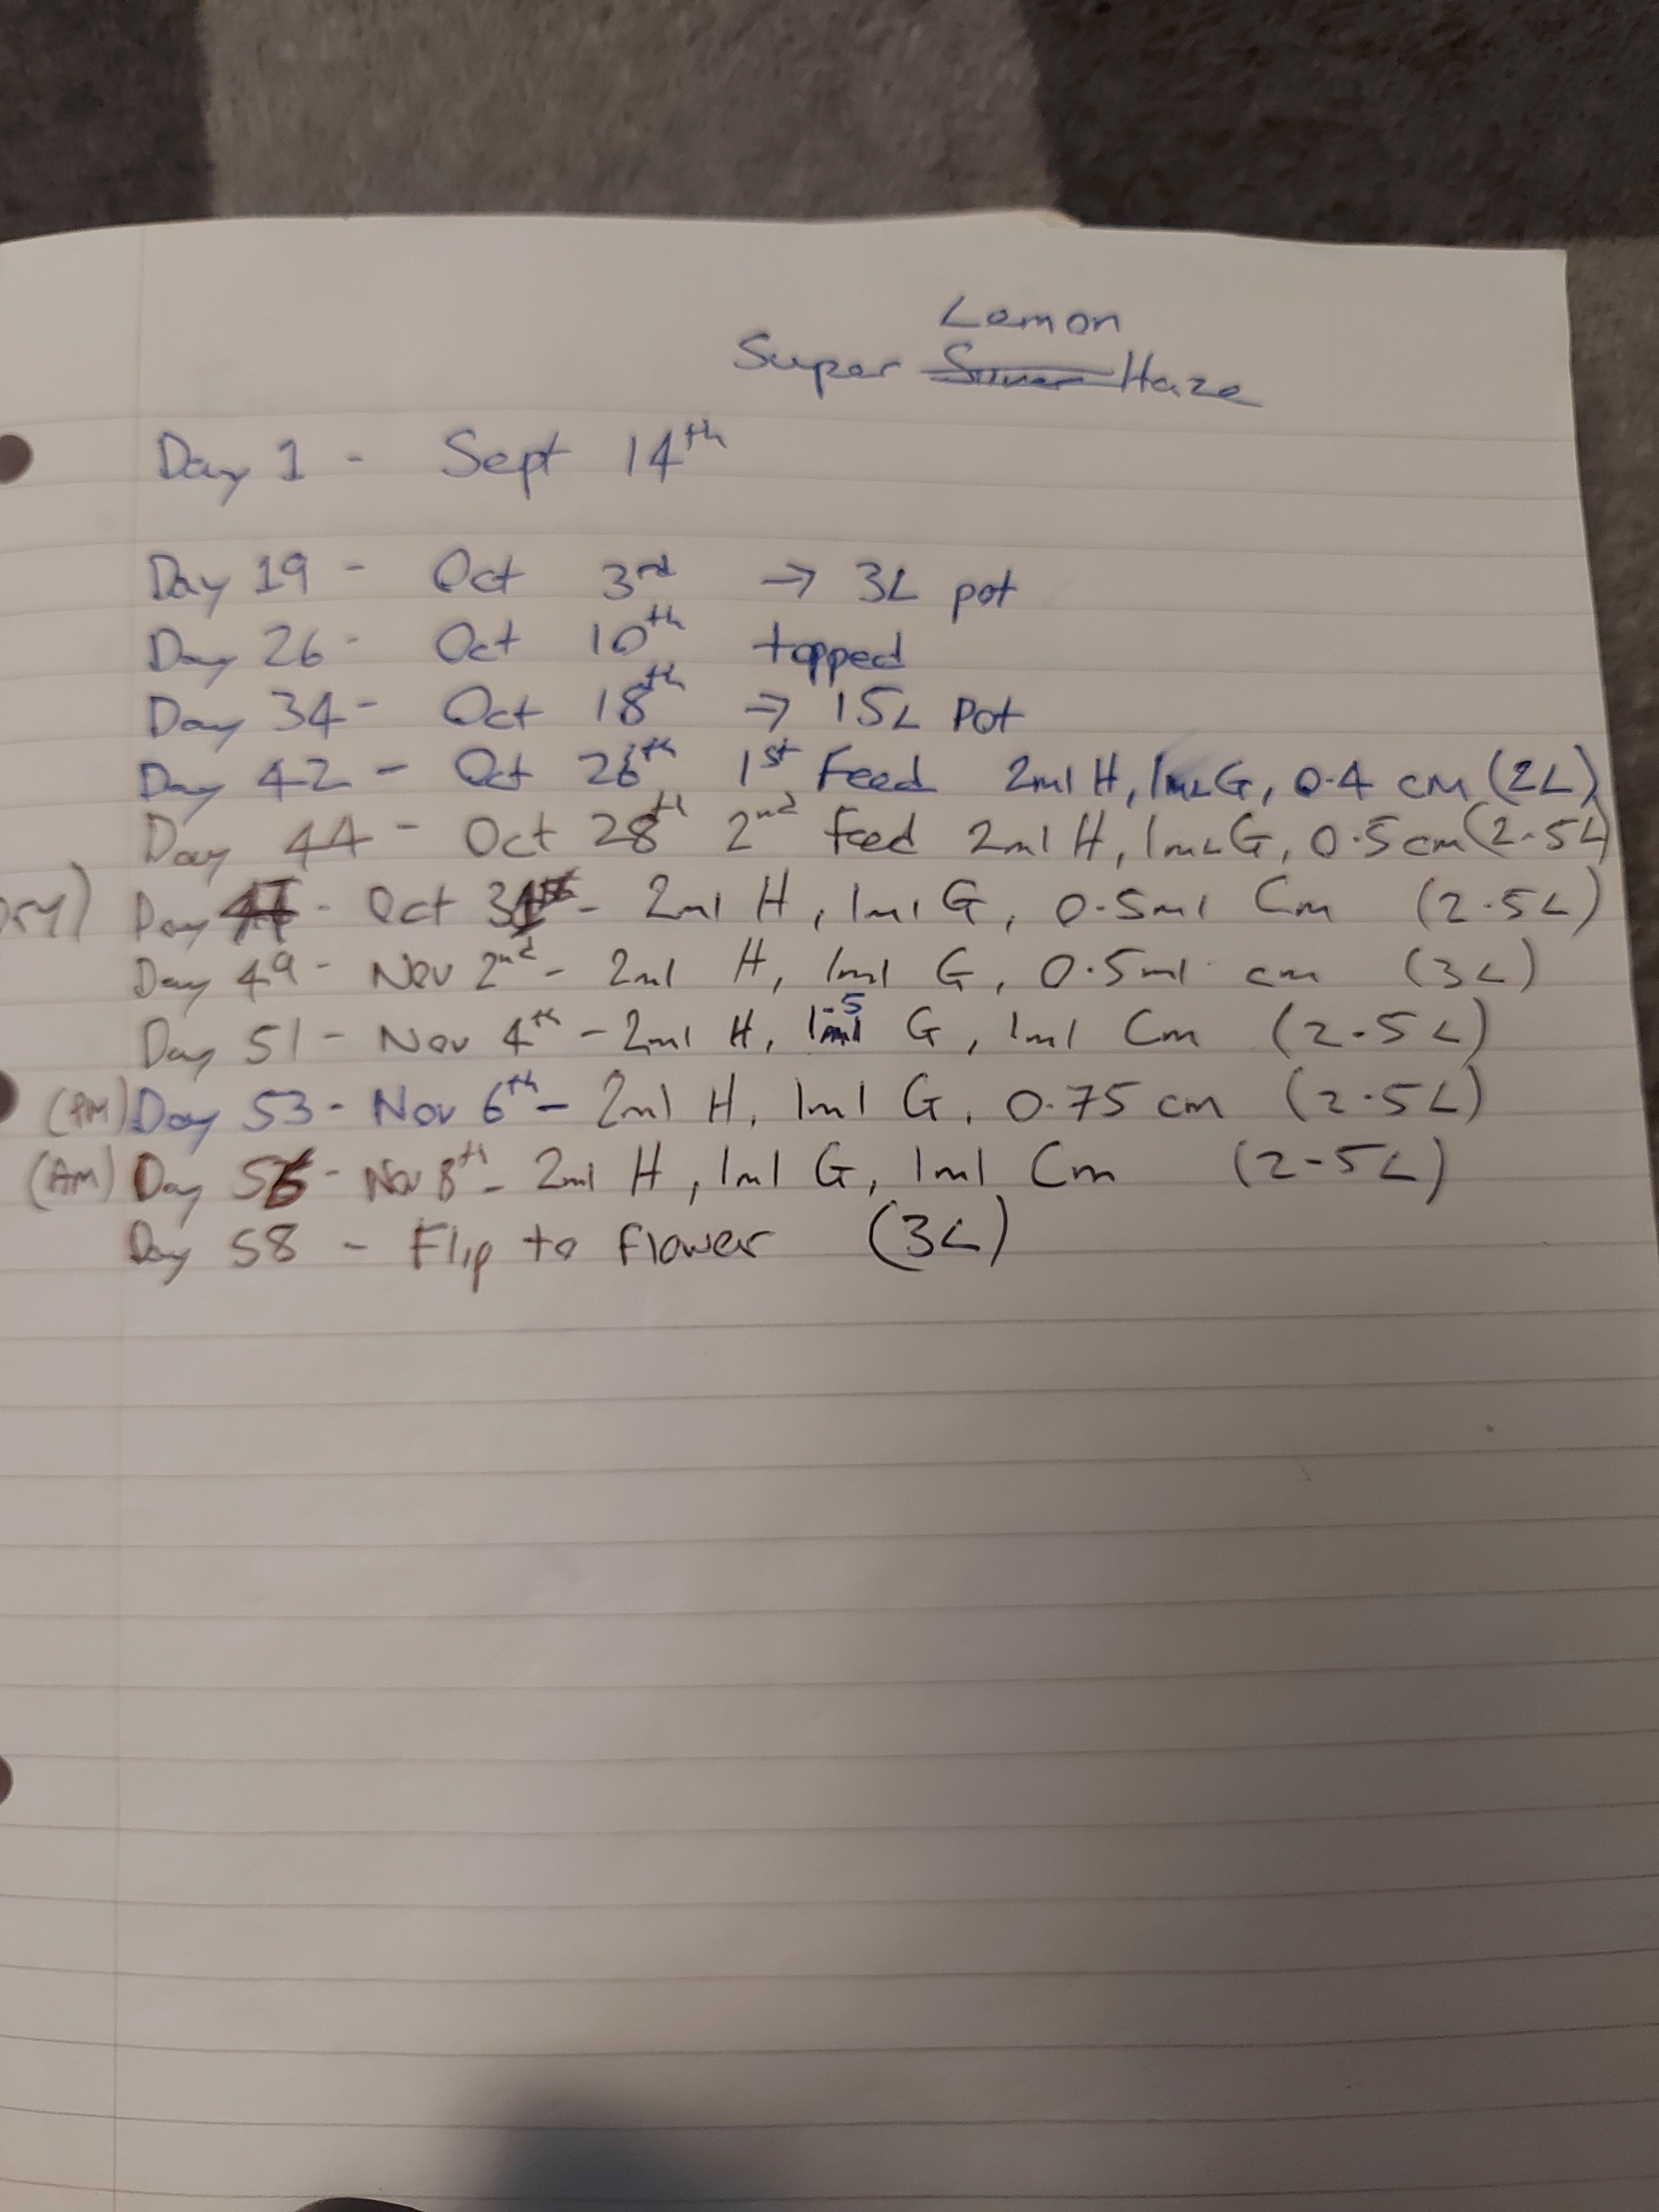 Lemon
Super Silver Haze
Day 1 - Sept 14th
Day 19 - Oct 3rd → 3L pot
Day 26 - Oct 10th topped
Day 34 - Oct 18th → 15L Pot
Day 42 - Oct 26th 1st Feed 2ml H, 1mL G, 0.4 cm (2L)
Day 44 - Oct 28th 2nd Feed 2ml H, 1mL G, 0.5 cm (2.5L)
Day 47 - Oct 31st - 2ml H, 1ml G, 0.5ml Cm (2.5L)
Day 49 - Nov 2nd - 2ml H, 1ml G, 0.5ml cm (3L)
Day 51 - Nov 4th - 2ml H, 1.5ml G, 1ml Cm (2.5L)
(PM) Day 53 - Nov 6th - 2ml H, 1ml G, 0.75 cm (2.5L)
(AM) Day 56 - Nov 8th - 2ml H, 1ml G, 1ml Cm (2.5L)
Day 58 - Flip to flower (3L)